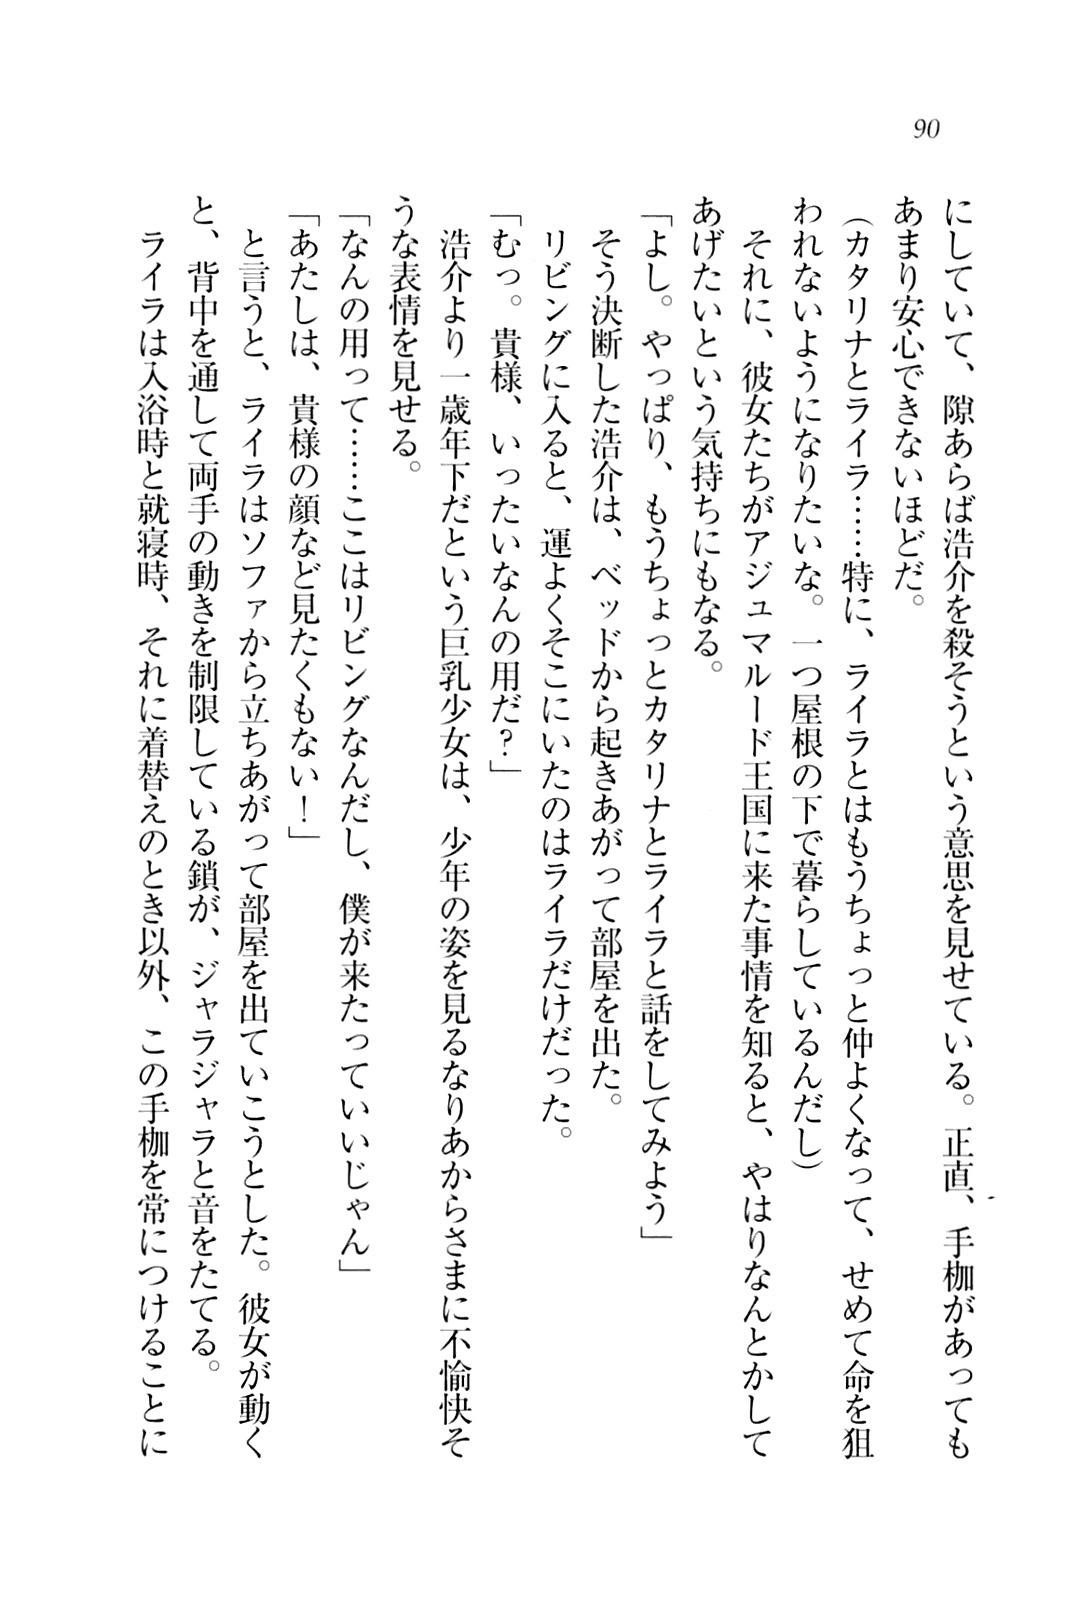 90
にしていて、隙あらば浩介を殺そうという意思を見せている。正直、手枷があっても
あまり安心できないほどだ。
（カタリナとライラ……特に、ライラとはもうちょっと仲よくなって、せめて命を狙
われないようになりたいな。一つ屋根の下で暮らしているんだし）
それに、彼女たちがアジュマルード王国に来た事情を知ると、やはりなんとかして
あげたいという気持ちにもなる。
「よし。やっぱり、もうちょっとカタリナとライラと話をしてみよう」
そう決断した浩介は、ベッドから起きあがって部屋を出た。
リビングに入ると、運よくそこにいたのはライラだけだった。
「むっ。貴様、いったいなんの用だ？」
浩介より一歳年下だという巨乳少女は、少年の姿を見るなりあからさまに不愉快そ
うな表情を見せる。
「なんの用って……ここはリビングなんだし、僕が来たっていいじゃん」
「あたしは、貴様の顔など見たくもない！」
と言うと、ライラはソファから立ちあがって部屋を出ていこうとした。彼女が動く
と、背中を通して両手の動きを制限している鎖が、ジャラジャラと音をたてる。
ライラは入浴時と就寝時、それに着替えのとき以外、この手枷を常につけることに